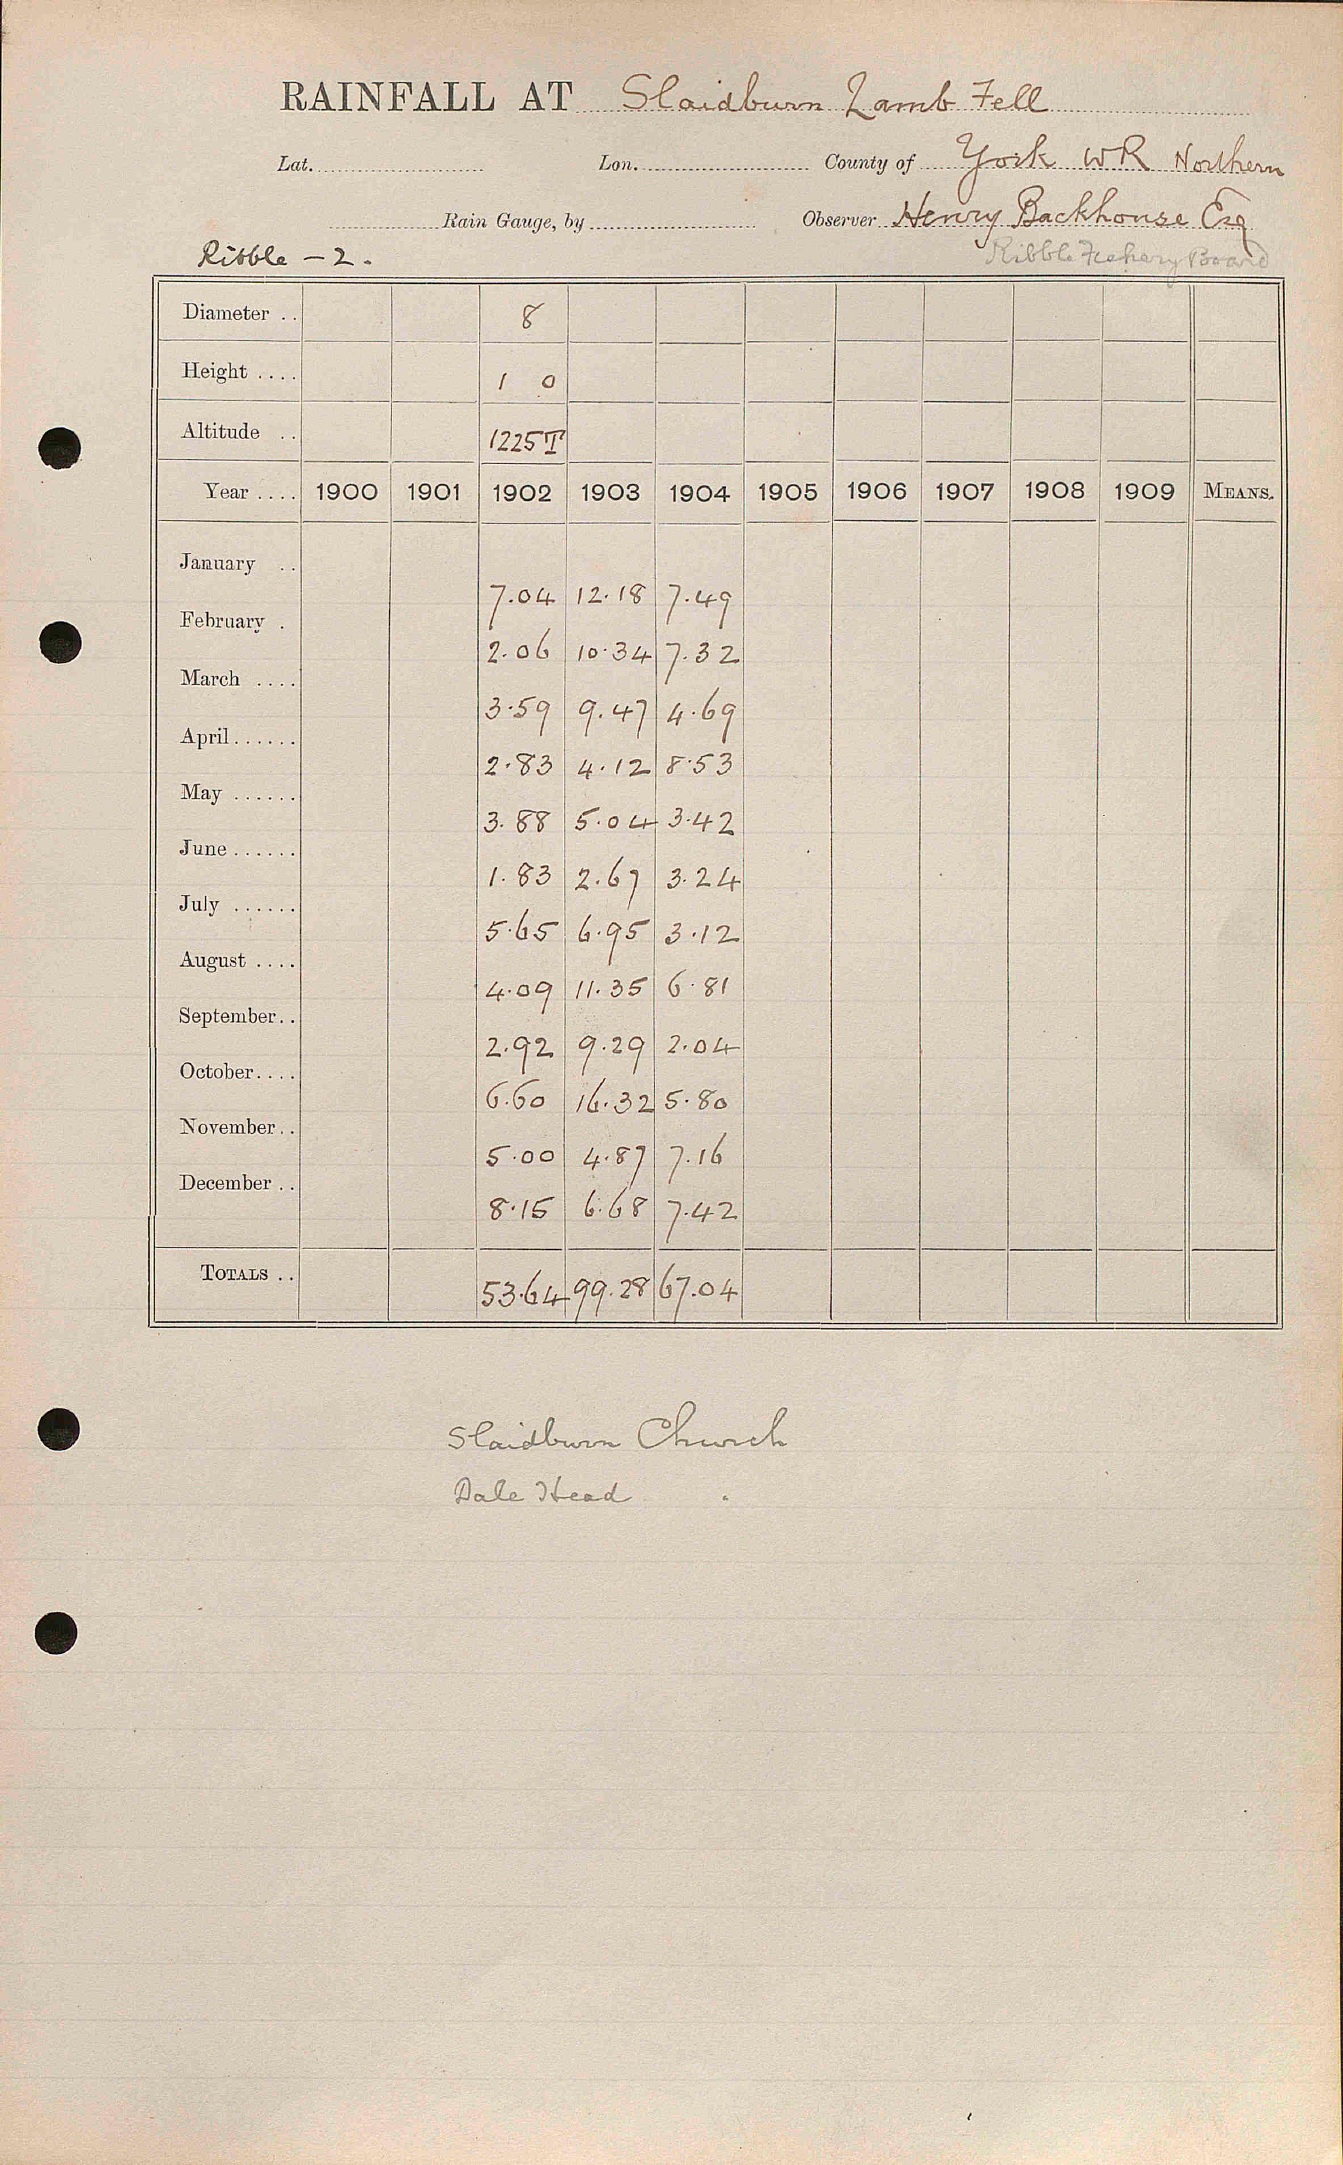 RAINFALL AT Slaidburn Lamb Fell
Lat. Lon. County of York WR Northern
Rain Gauge, by Observer Henry Backhouse Esq
Ribble - 2. Ribble Fishery Board
Diameter .. 8
Height .... 1 0
Altitude .. 1225T
Year .... 1900 1901 1902 1903 1904 1905 1906 1907 1908 1909 MEANS.
January ..
7.04 12.18 7.49
February .
2.06 10.34 7.32
March ....
3.59 9.47 4.69
April......
2.83 4.12 8.53
May ......
3.88 5.04 3.42
June ......
1.83 2.67 3.24
July ......
5.65 6.95 3.12
August ....
4.09 11.35 6.81
September..
2.92 9.29 2.04
October....
6.60 16.32 5.80
November..
5.00 4.87 7.16
December ..
8.15 6.68 7.42
TOTALS ..
53.64 99.28 67.04
Slaidburn Church
Dale Head